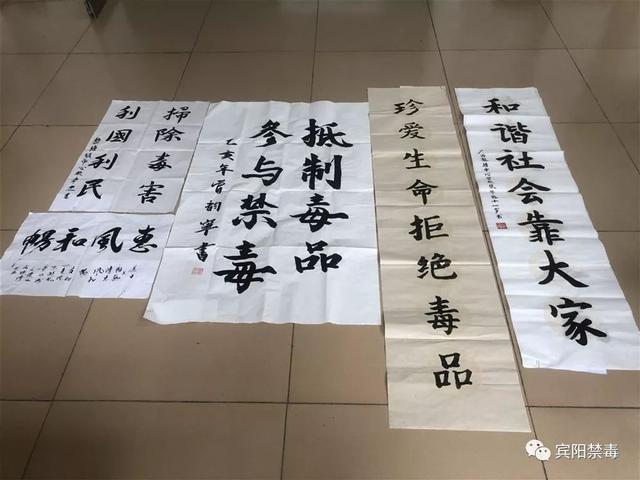 掃除毒害
利國利民
惠風和暢
抵制毒品
参与禁毒
珍爱生命拒绝毒品
和谐社会靠大家
宾阳禁毒